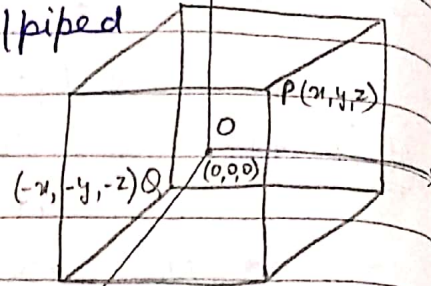 ||piped
P(x,y,z)
O
(0,0,0)
(-x, -y, -z) Q